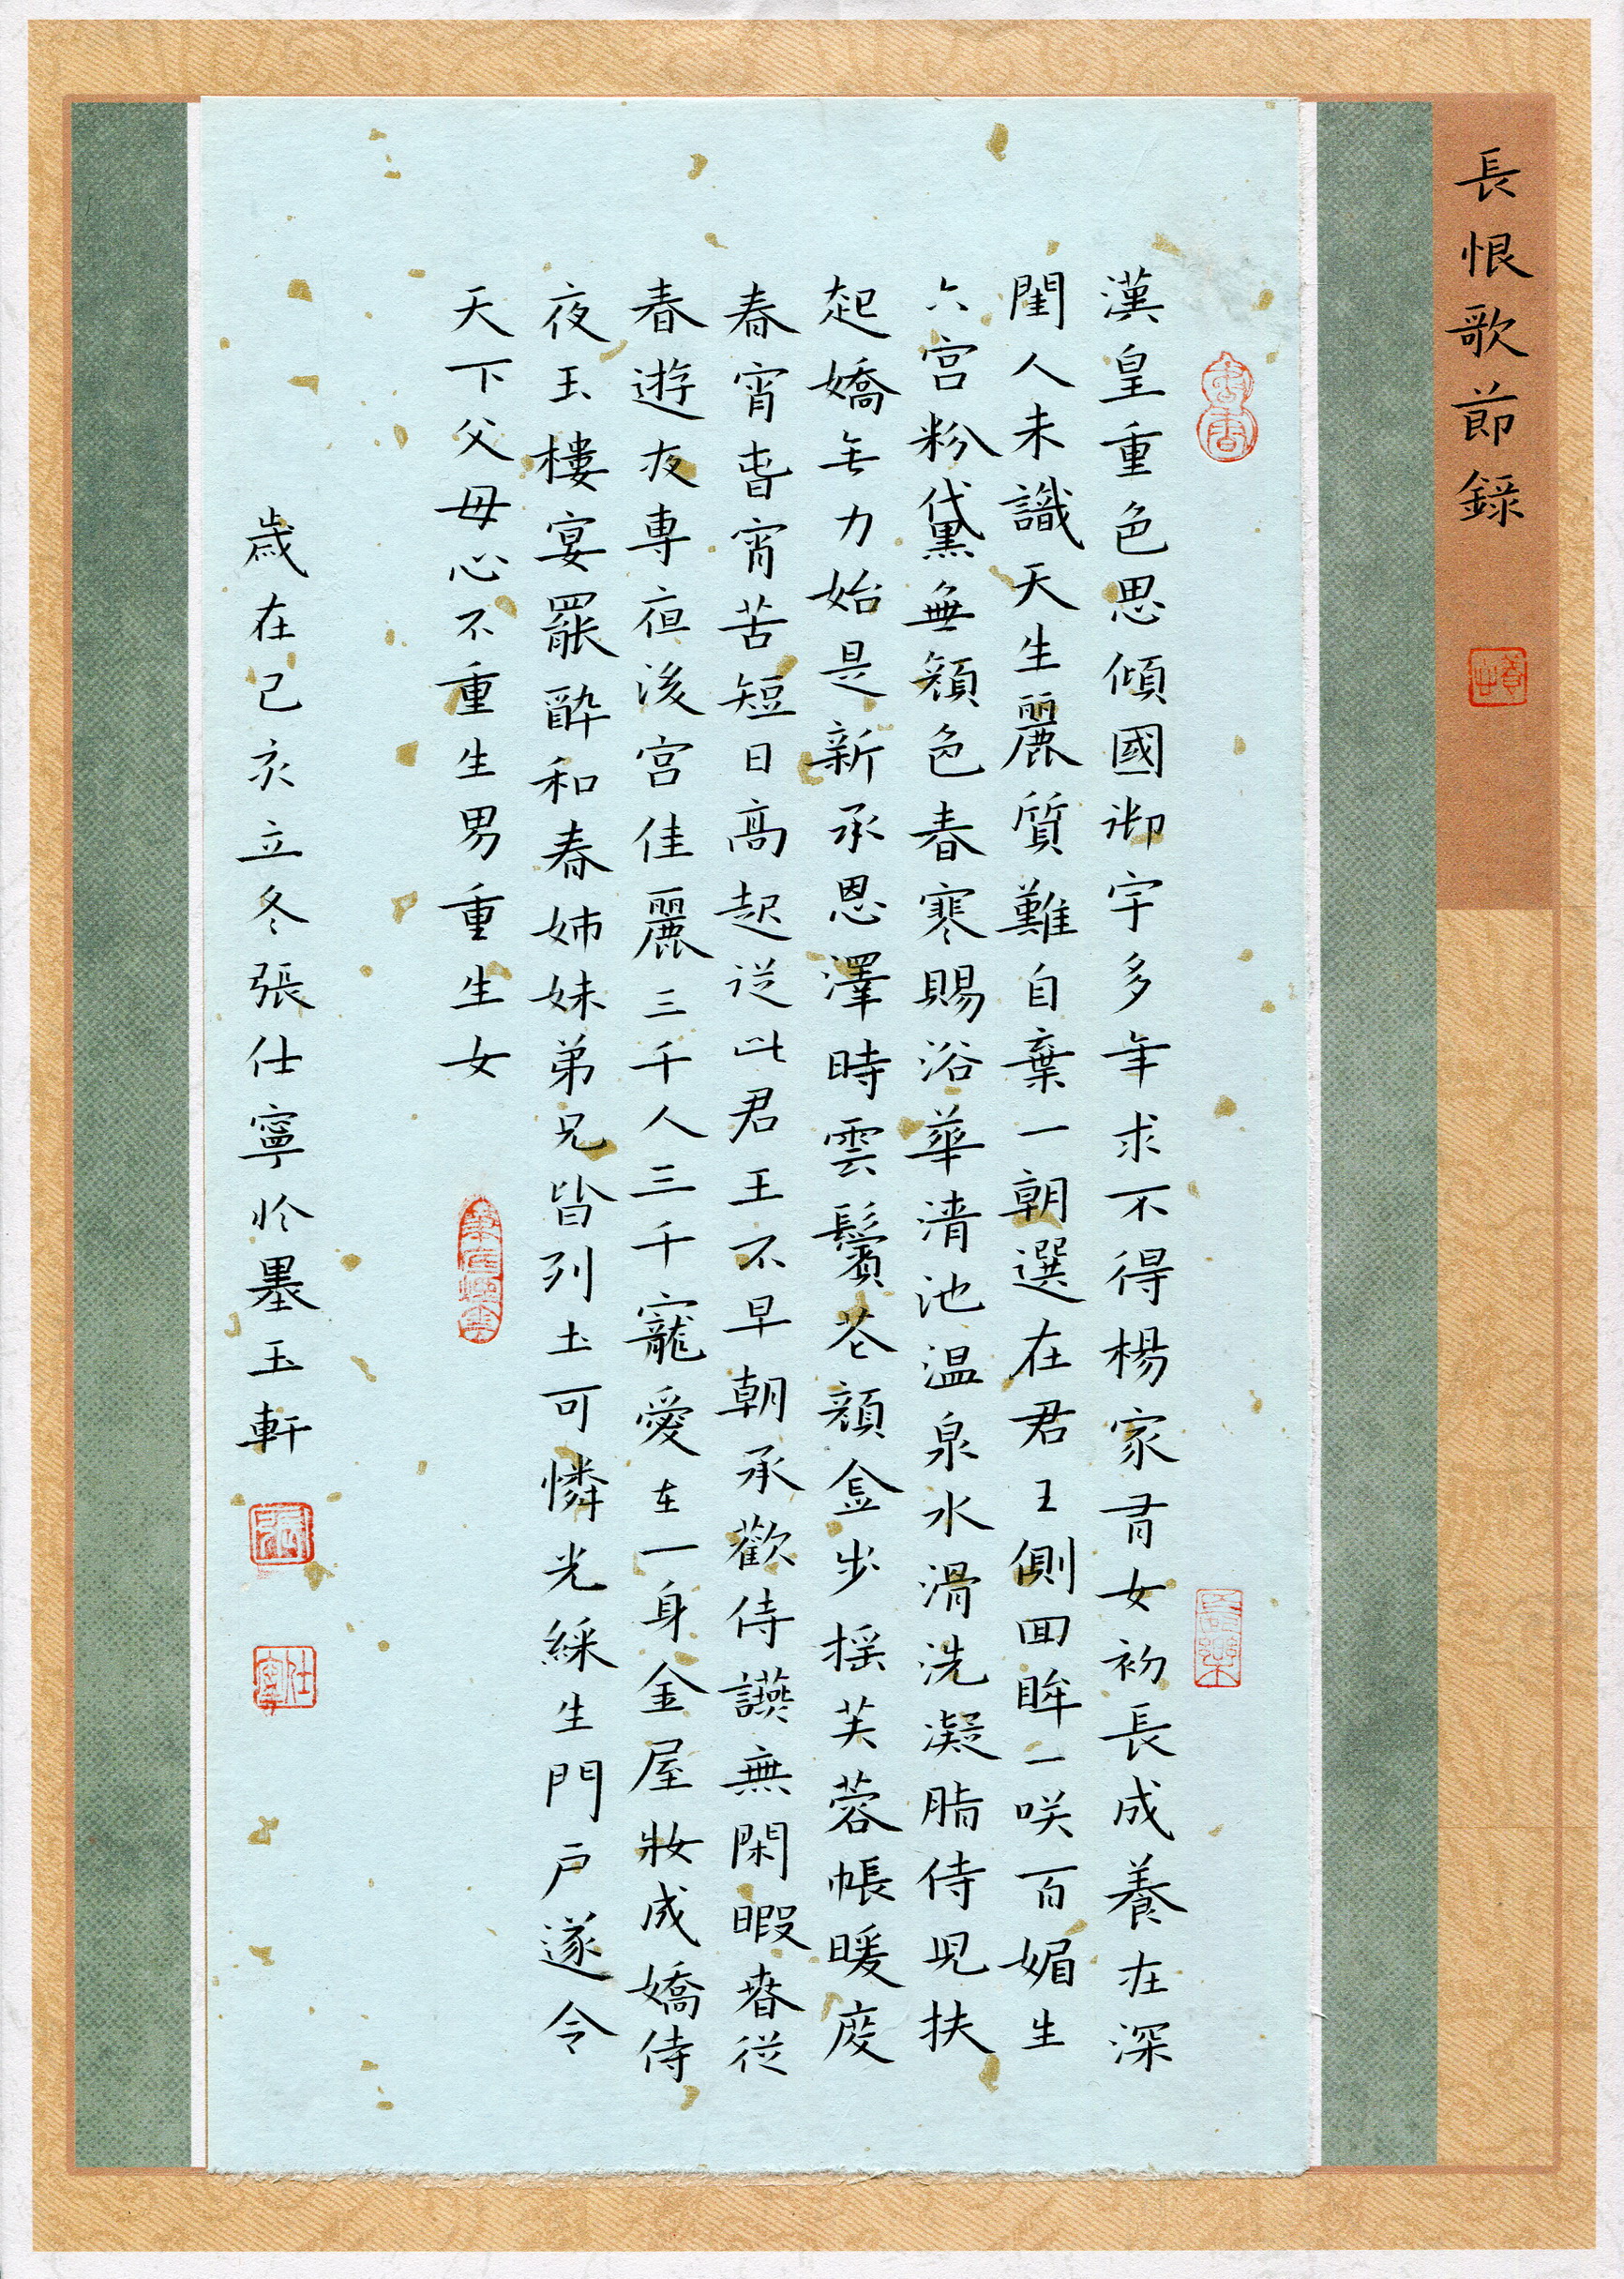 長恨歌節錄
書香
漢皇重色思傾國御宇多年求不得楊家有女初長成養在深
閨人未識天生麗質難自棄一朝選在君王側回眸一咲百媚生
六宮粉黛無顏色春寒賜浴華清池温泉水滑洗凝脂侍兒扶
起嬌无力始是新承恩澤時雲鬢花顏金步摇芙蓉帳暖度
春宵春宵苦短日高起從此君王不早朝承歡侍讌無閑暇春從
春遊夜專夜後宮佳麗三千人三千寵愛在一身金屋妝成嬌侍
夜玉樓宴罷醉和春姊妹弟兄皆列土可憐光綵生門戶遂令
天下父母心不重生男重生女
歲在己亥立冬張仕寧於墨玉軒
張
仕寧